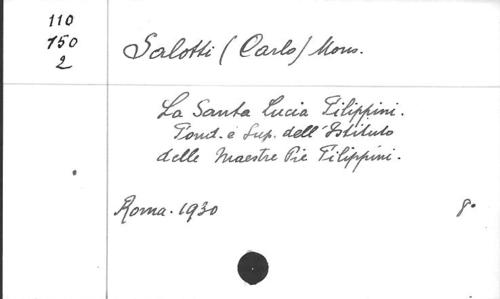 110
150
2
Salotti (Carlo) Mons.
La Santa Lucia Filippini.
Fond. e Sup. dell'Istituto
delle Maestre Pie Filippini.
Roma. 1930
8°